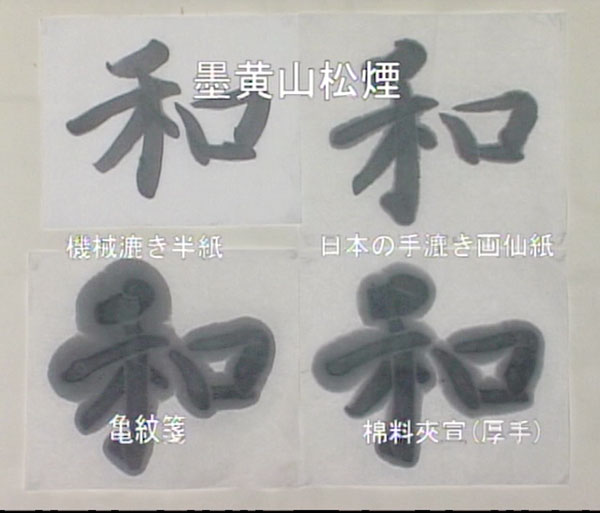 墨黄山松煙
和
和
機械漉き半紙
日本の手漉き画仙紙
和
和
亀紋箋
棉料夾宣(厚手)